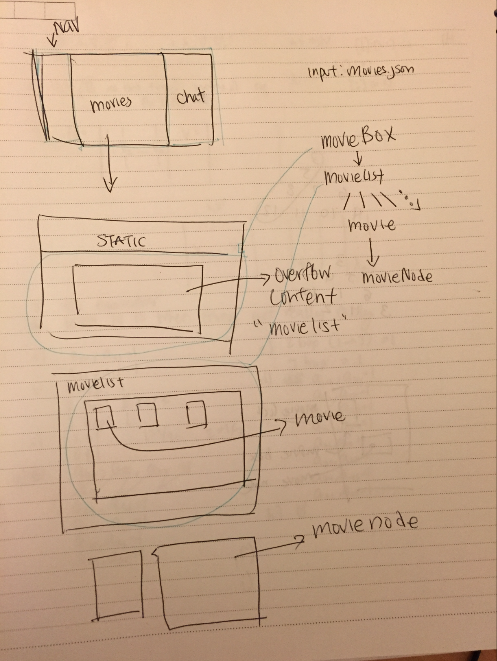 Nav
movies
chat
input: movies.json
movieBox
movielist
movie
movieNode
STATIC
overflow
content
"movielist"
movielist
movie
movienode